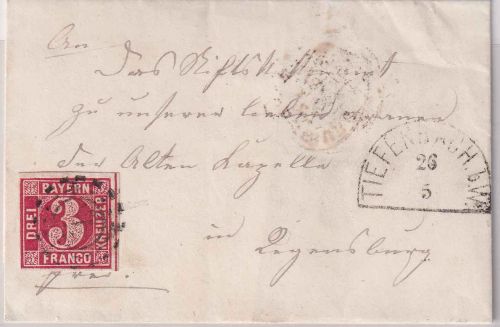 An
Das Stiftskastenamt
zu unserer lieben Frauen
der Alten Kapelle
in Regensburg
frei.
TIEFENBACH b/W
26
5
BAYERN
DREI
3
KREUZER
FRANCO